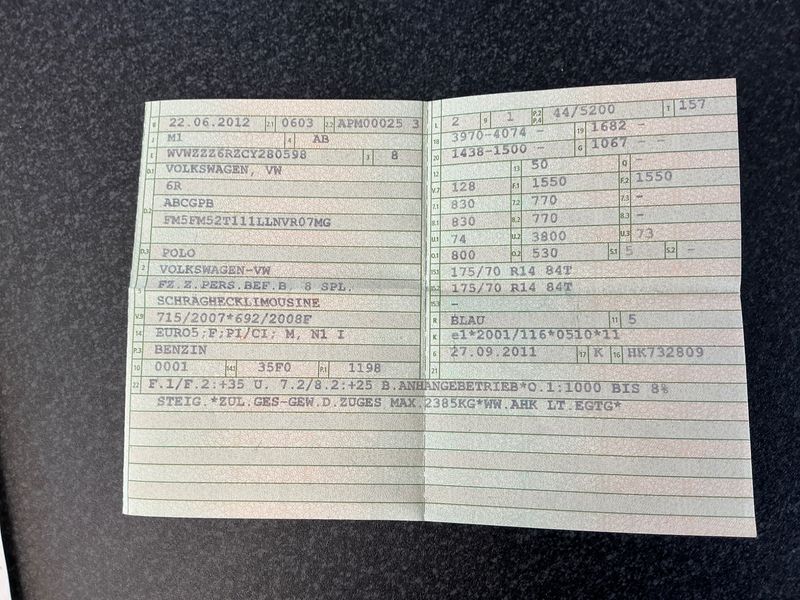 B 22.06.2012 2.1 0603 2.2 APM00025 3
J M1 4 AB
E WVWZZZ6RZCY280598 3 8
D.1 VOLKSWAGEN, VW
6R
D.2 ABCGPB
FM5FM52T111LLNVR07MG
D.3 POLO
2 VOLKSWAGEN-VW
5 FZ.Z.PERS.BEF.B. 8 SPL.
SCHRÄGHECKLIMOUSINE
V.9 715/2007*692/2008F
14 EURO5;F;PI/CI; M, N1 I
P.3 BENZIN
10 0001 14.1 35F0 P.1 1198
L 2 9 1 P.2 P.4 44/5200 T 157
18 3970-4074 - 19 1682 -
20 1438-1500 - G 1067 - -
12 - 13 50 Q -
V.7 128 F.1 1550 F.2 1550
7.1 830 7.2 770 7.3 -
8.1 830 8.2 770 8.3 -
U.1 74 U.2 3800 U.3 73
O.1 800 O.2 530 S.1 5 S.2 -
15.1 175/70 R14 84T
15.2 175/70 R14 84T
15.3 -
R BLAU 11 5
K e1*2001/116*0510*11
6 27.09.2011 17 K 16 HK732809
21
22 F.1/F.2:+35 U. 7.2/8.2:+25 B.ANHÄNGEBETRIEB*O.1:1000 BIS 8%
STEIG.*ZUL.GES-GEW.D.ZUGES MAX.2385KG*WW.AHK LT.EGTG*